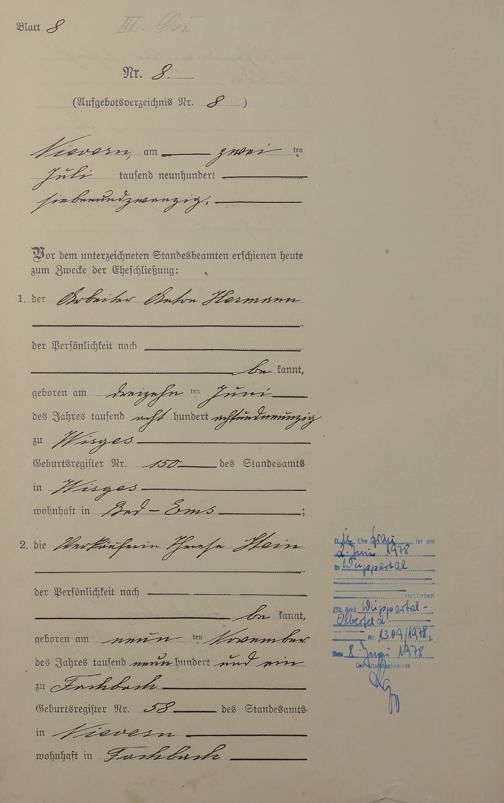 Blatt 8
Nr. 8.
(Aufgebotsverzeichnis Nr. 8)
Nievern, am zwei ten
Juli tausend neunhundert
siebenundzwanzig.
Vor dem unterzeichneten Standesbeamten erschienen heute
zum Zwecke der Eheschließung:
1. der Arbeiter Anton Hermann
der Persönlichkeit nach
be kannt,
geboren am dreizehn ten Juni
des Jahres tausend acht hundert achtundneunzig
zu Wirges
Geburtsregister Nr. 150 des Standesamts
in Wirges
wohnhaft in Bad-Ems;
2. die Verkäuferin Therese Stein
der Persönlichkeit nach
be kannt,
geboren am neun ten November
des Jahres tausend neun hundert und ein
zu Fachbach
Geburtsregister Nr. 58 des Standesamts
in Nievern
wohnhaft in Fachbach
Ehefrau ist am
2. Juni 1978
in Wuppertal
verstorben
Wuppertal-
Elberfeld
Nr. 1309/1978.
8. Juni 1978
Der Standesbeamte